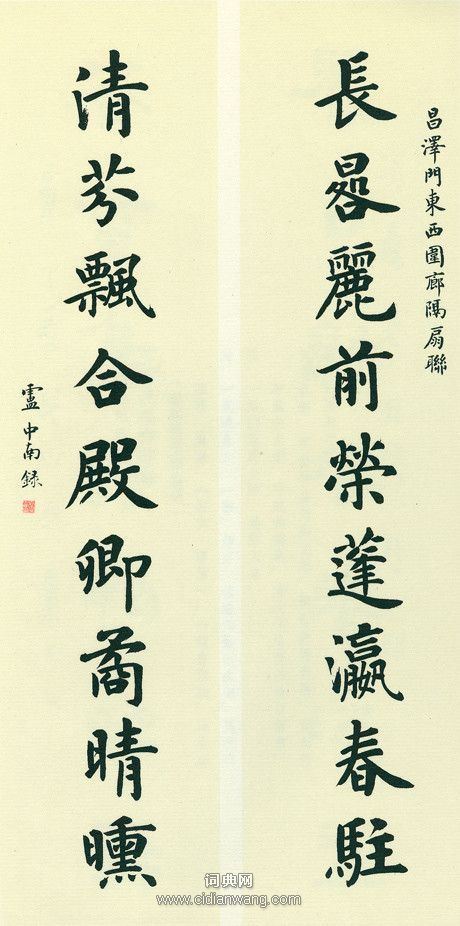 昌澤門東西圍廊隅扇聯
長晷麗前榮蓬瀛春駐
清芬飄合殿卿矞晴曛
盧中南録
词典网
www.cidianwang.com